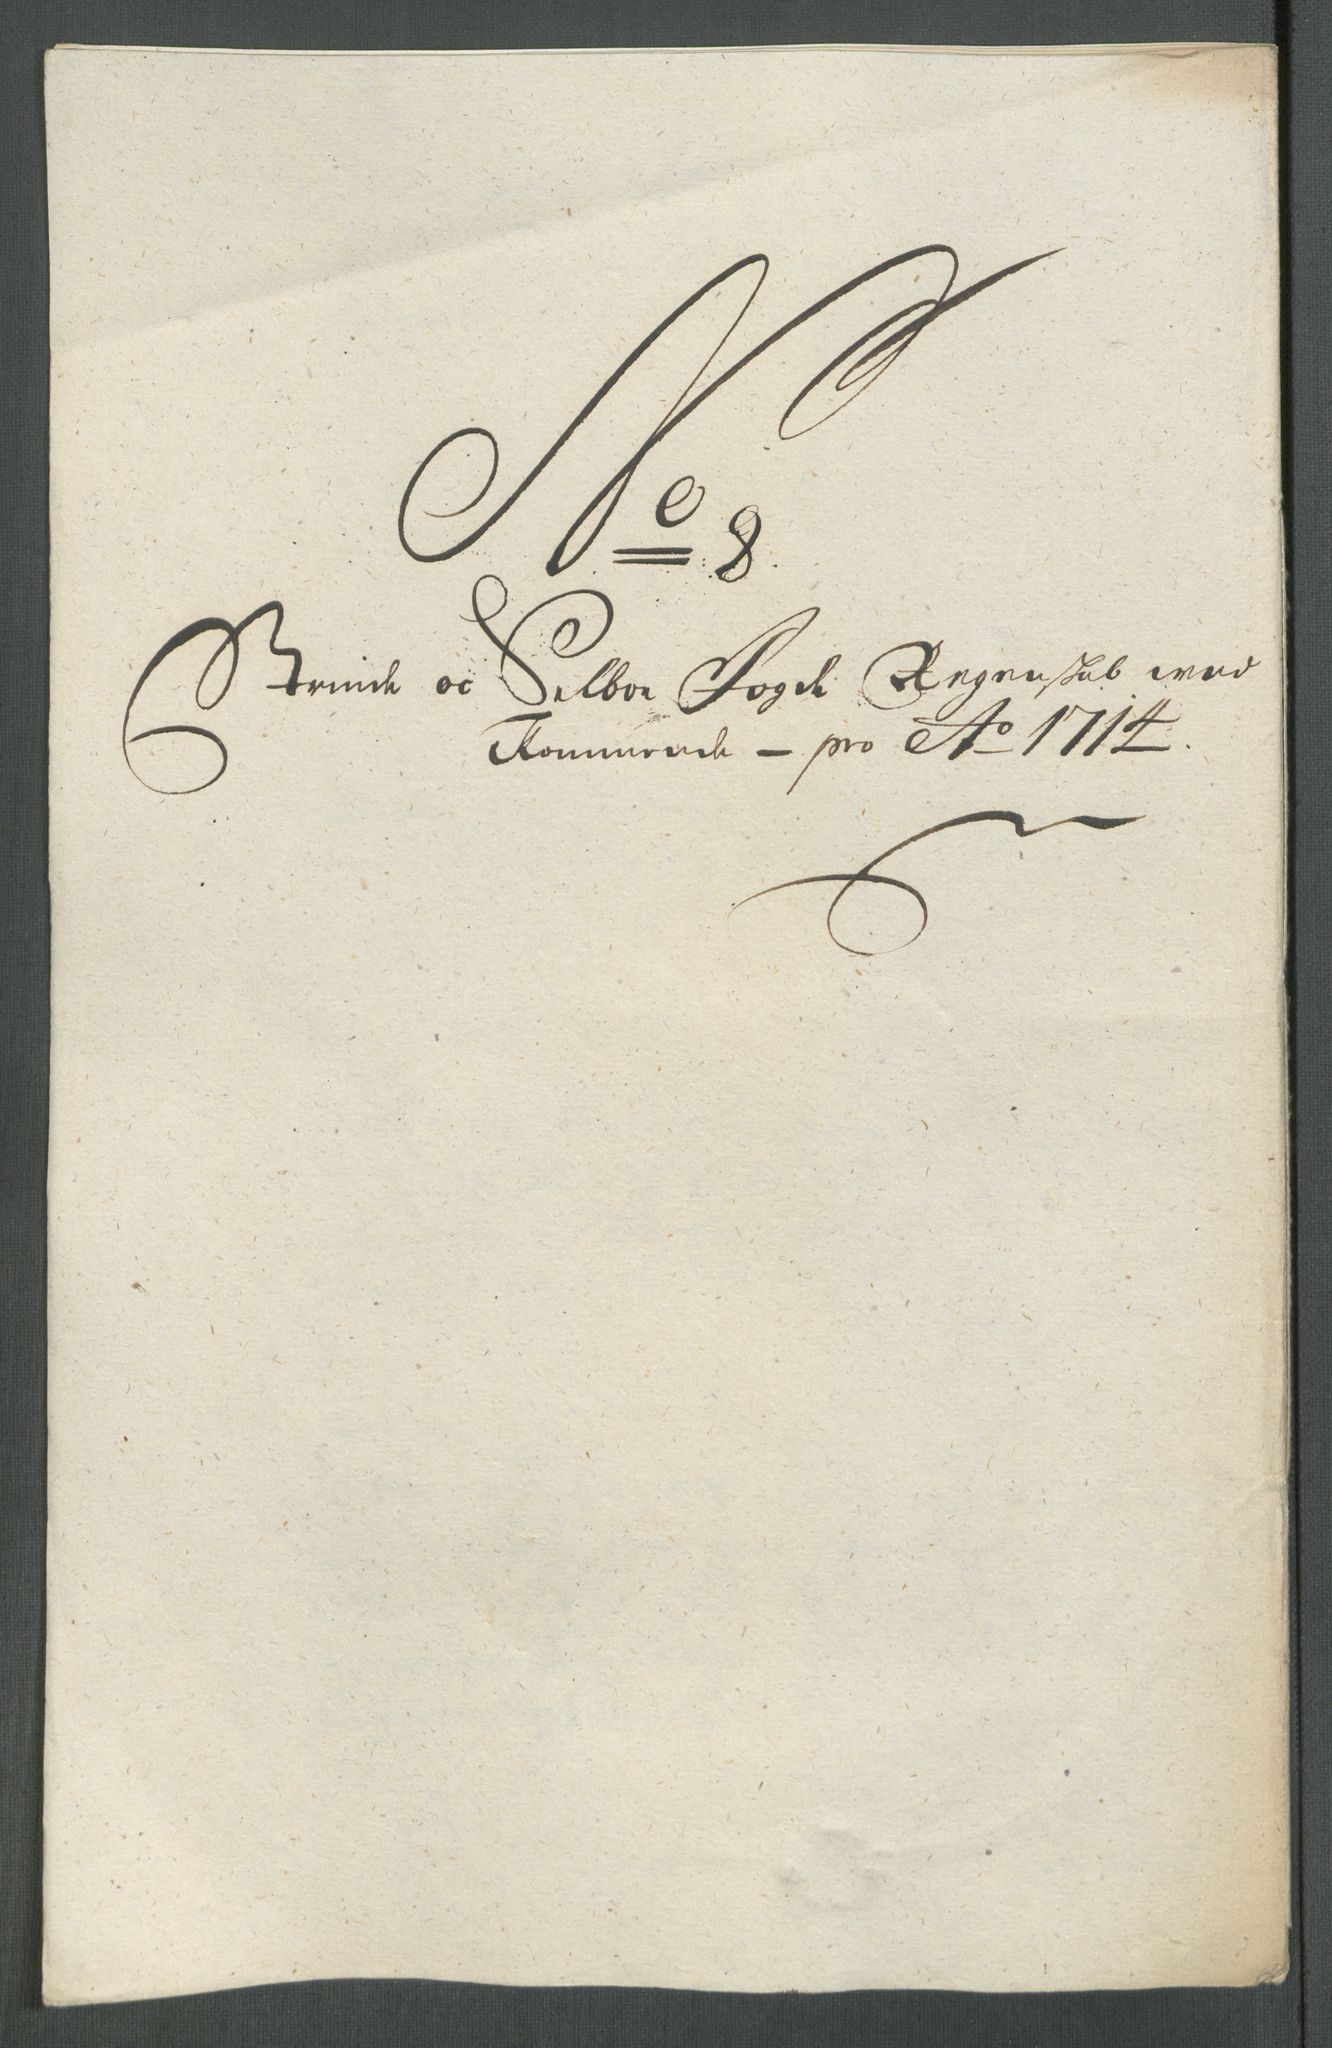 No 8
Strinde oc Selboe Fogde Regenskab ved
Kommende – pro Ao 1714.